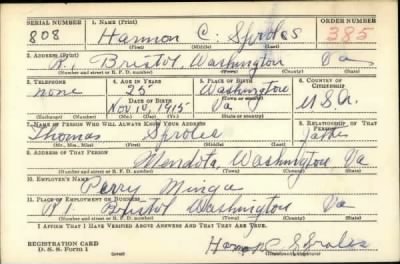 SERIAL NUMBER 1. NAME (Print) ORDER NUMBER
808 Harmon C. Sproles 385
(First) (Middle) (Last)
2. ADDRESS (Print)
R.1 Bristol, Washington Va
(Number and street or R. F. D. number) (Town) (County) (State)
3. TELEPHONE 4. AGE IN YEARS 5. PLACE OF BIRTH 6. COUNTRY OF CITIZENSHIP
none 25 Washington
DATE OF BIRTH (Town or county)
Nov 10, 1915 Va U S A.
(Exchange) (Number) (Mo.) (Day) (Yr.) (State or country)
7. NAME OF PERSON WHO WILL ALWAYS KNOW YOUR ADDRESS 8. RELATIONSHIP OF THAT PERSON
Thomas Sproles Father
(Mr., Mrs., Miss) (First) (Middle) (Last)
9. ADDRESS OF THAT PERSON
Mendota, Washington, Va
(Number and street or R. F. D. number) (Town) (County) (State)
10. EMPLOYER'S NAME
Perry Minga
11. PLACE OF EMPLOYMENT OR BUSINESS
R1 Bristol Washington Va
(Number and street or R. F. D. number) (Town) (County) (State)
I AFFIRM THAT I HAVE VERIFIED ABOVE ANSWERS AND THAT THEY ARE TRUE.
REGISTRATION CARD
D. S. S. Form 1 (over) Harmon C Sproles